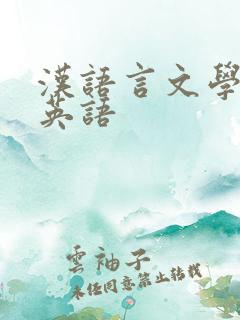 漢語言文學
英語
雲袖子
未经同意禁止转载